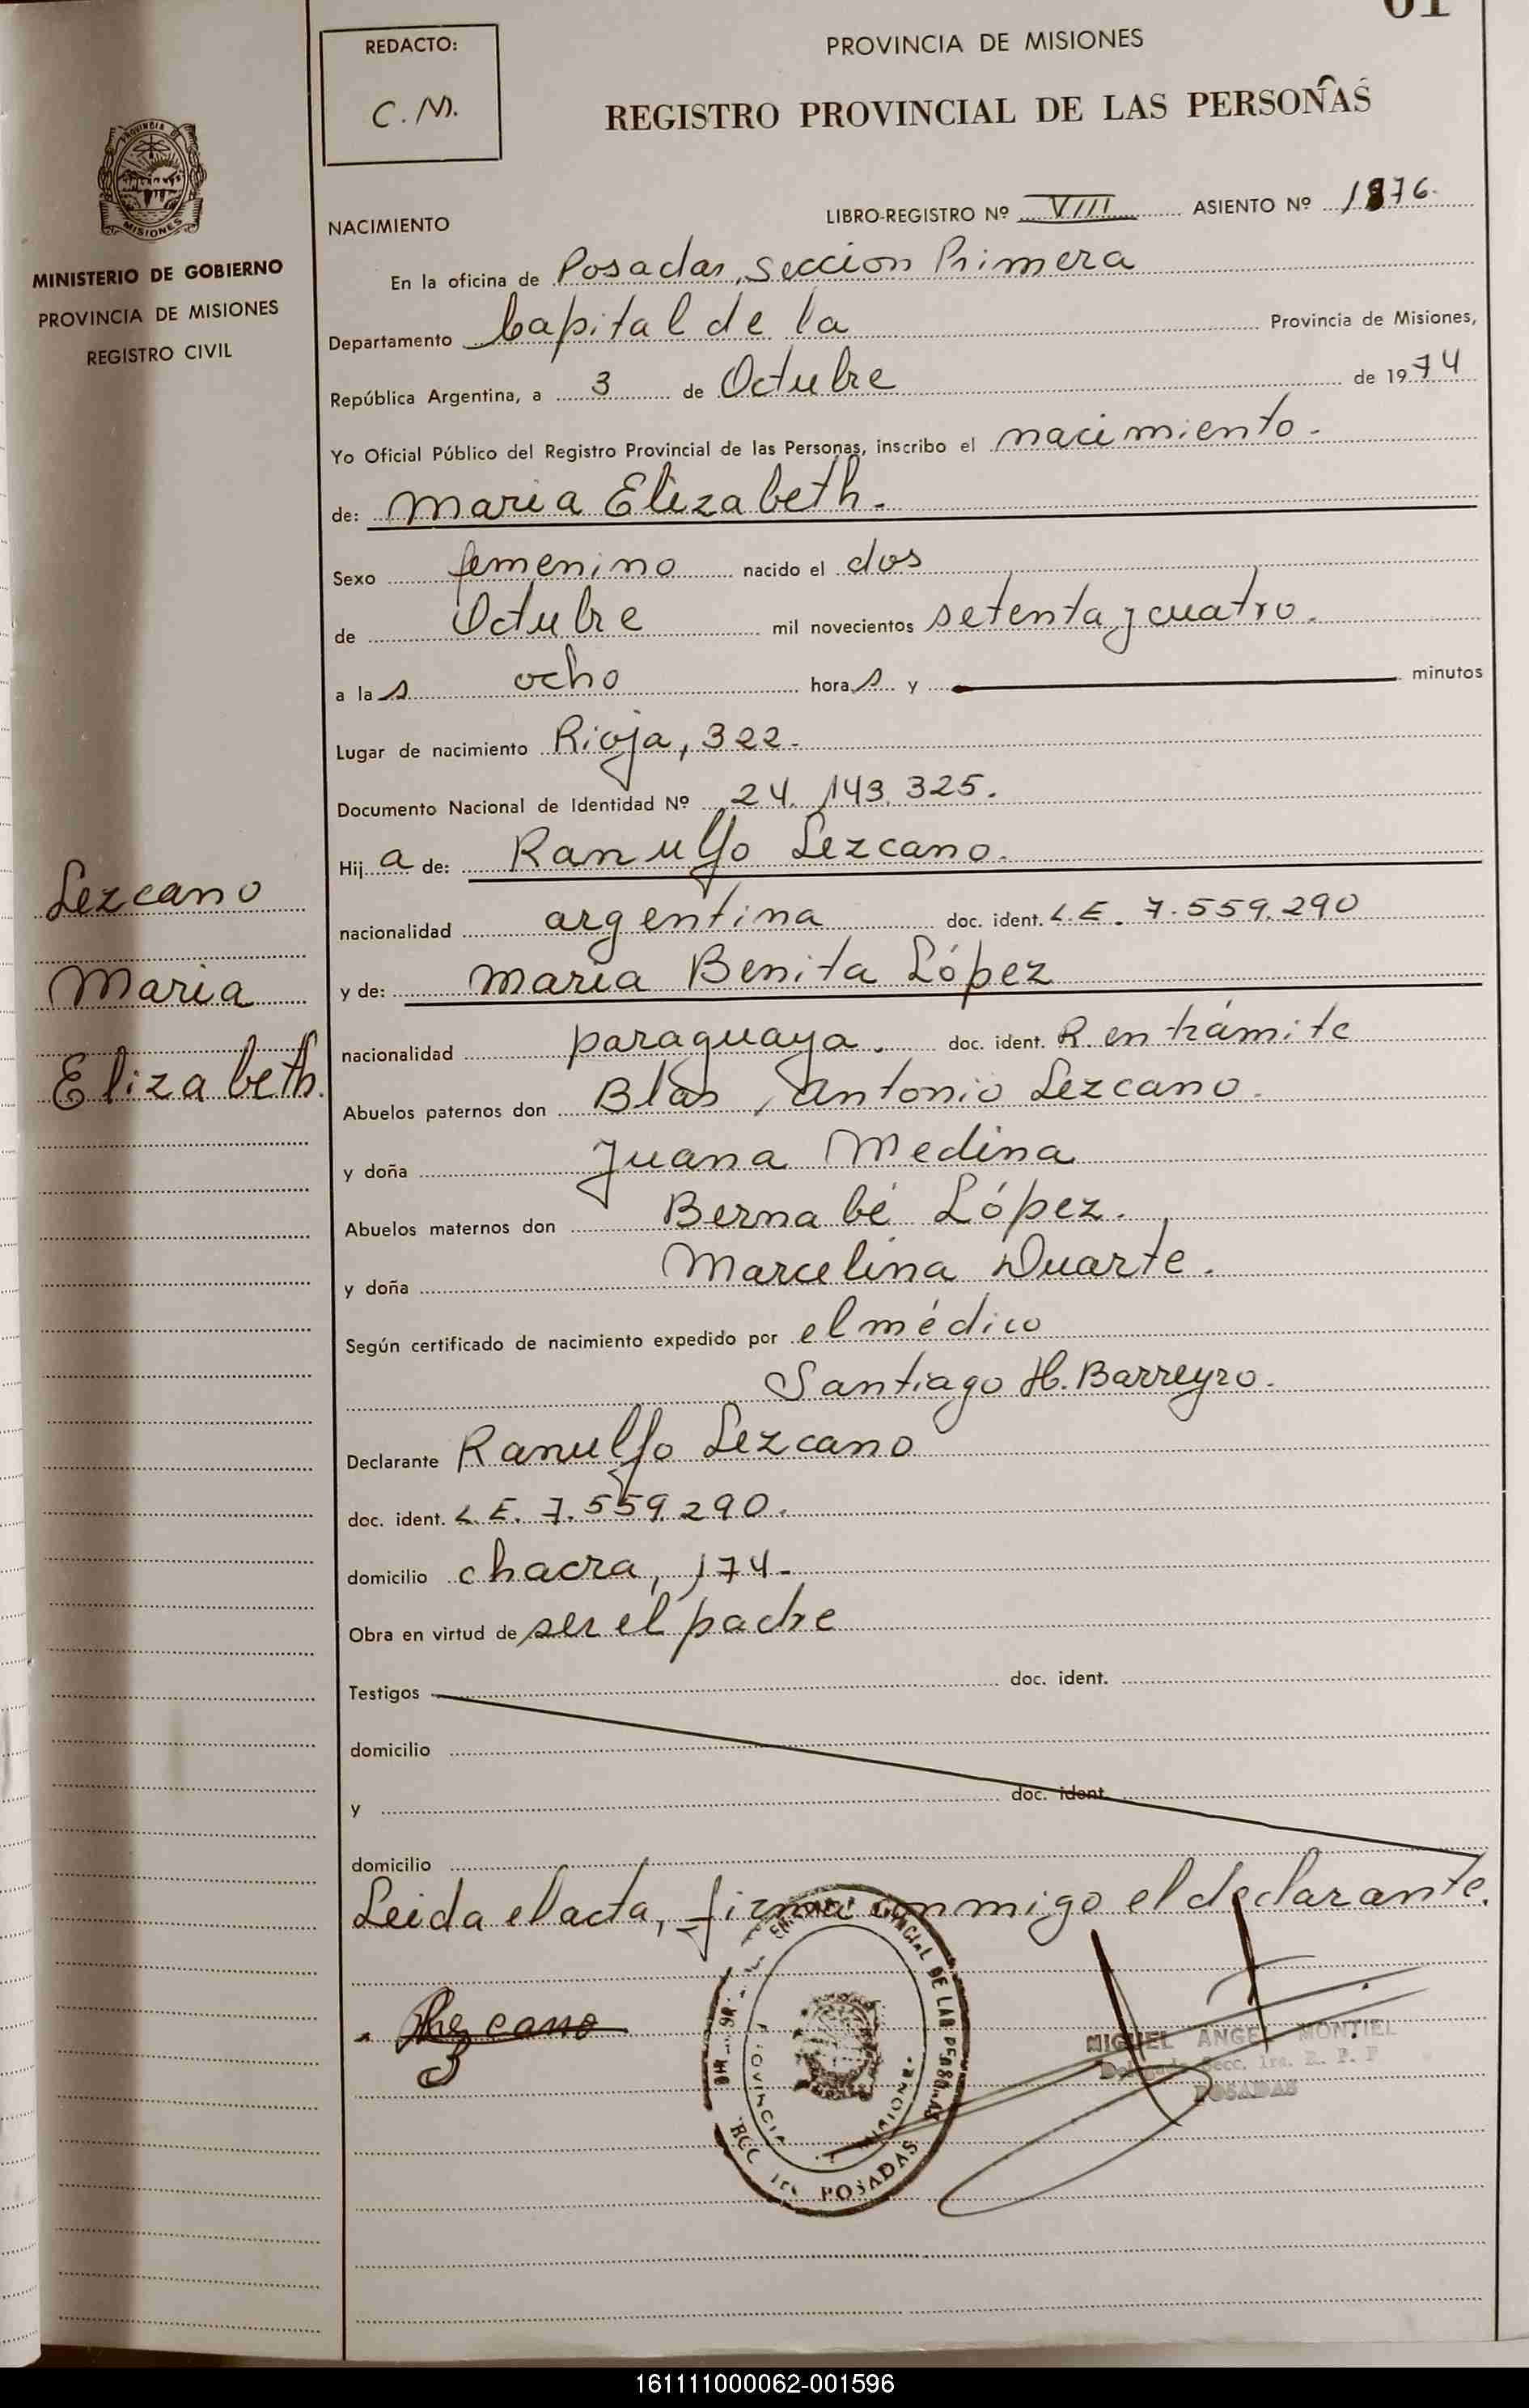 01
REDACTO:
C. M.
PROVINCIA DE MISIONES
REGISTRO PROVINCIAL DE LAS PERSONAS
NACIMIENTO
LIBRO-REGISTRO Nº VIII ASIENTO Nº 1876.
MINISTERIO DE GOBIERNO
PROVINCIA DE MISIONES
REGISTRO CIVIL
En la oficina de Posadas, Sección Primera
Departamento Capital de la Provincia de Misiones,
República Argentina, a 3 de Octubre de 1974
Yo Oficial Público del Registro Provincial de las Personas, inscribo el nacimiento.
de: Maria Elizabeth.
Sexo femenino nacido el dos
de Octubre mil novecientos setenta y cuatro.
a las ocho horas y minutos
Lugar de nacimiento Rioja, 322.
Documento Nacional de Identidad Nº 24.143.325.
Hija de: Ranulfo Lezcano.
nacionalidad argentina doc. ident. L.E. 7.559.290
y de: Maria Benita López
nacionalidad paraguaya. doc. ident. R. en trámite
Abuelos paternos don Blas Antonio Lezcano.
y doña Juana Medina
Abuelos maternos don Bernabé López.
y doña Marcelina Duarte.
Según certificado de nacimiento expedido por el médico
Santiago H. Barreyro.
Declarante Ranulfo Lezcano
doc. ident. L.E. 7.559.290.
domicilio chacra, 174-
Obra en virtud de ser el padre
Testigos doc. ident.
domicilio
y doc. ident.
domicilio
Leida el acta, firma conmigo el declarante.
Lezcano
Maria
Elizabeth.
Lezcano
MIGUEL ANGEL MONTIEL
Delegado Secc. 1ra. R. P. P
POSADAS
DE LAS PERSONAS
PROVINCIA MISIONES
POSADAS
161111000062-001596